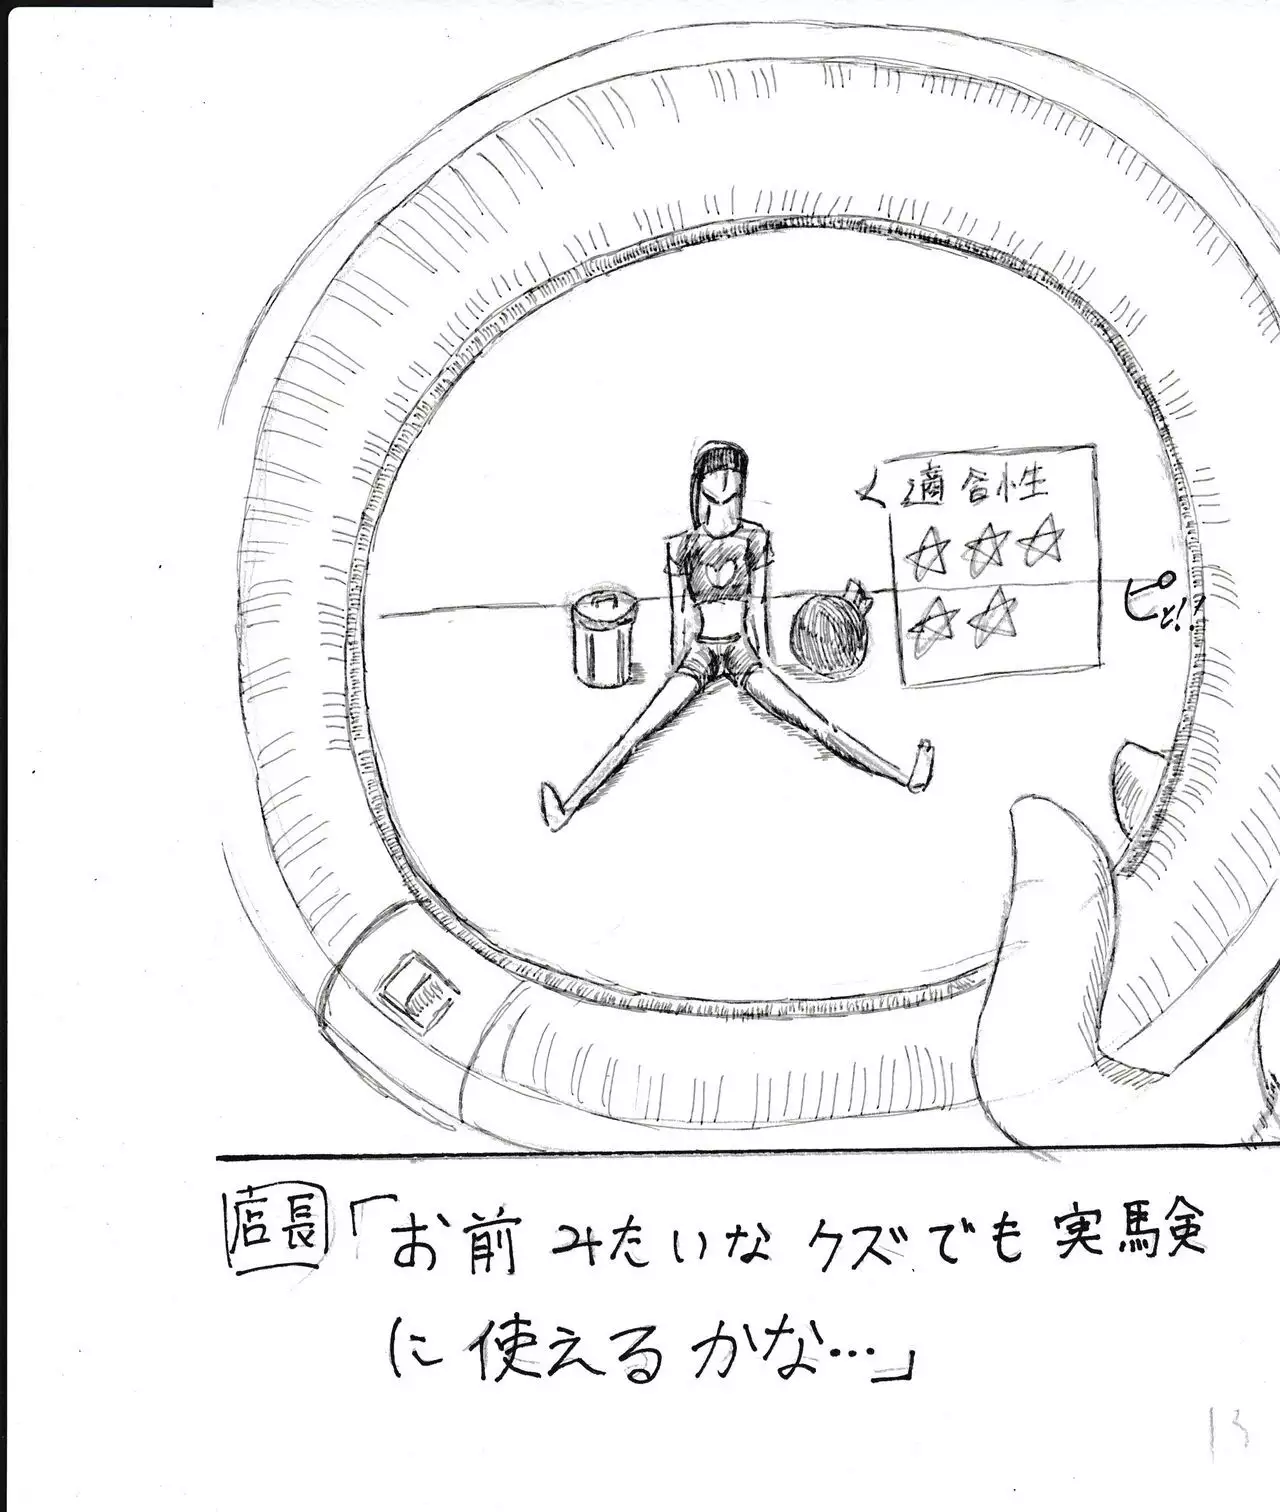 適合性
ピピッ!
店長「お前みたいなクズでも実験
に使えるかな…」
13